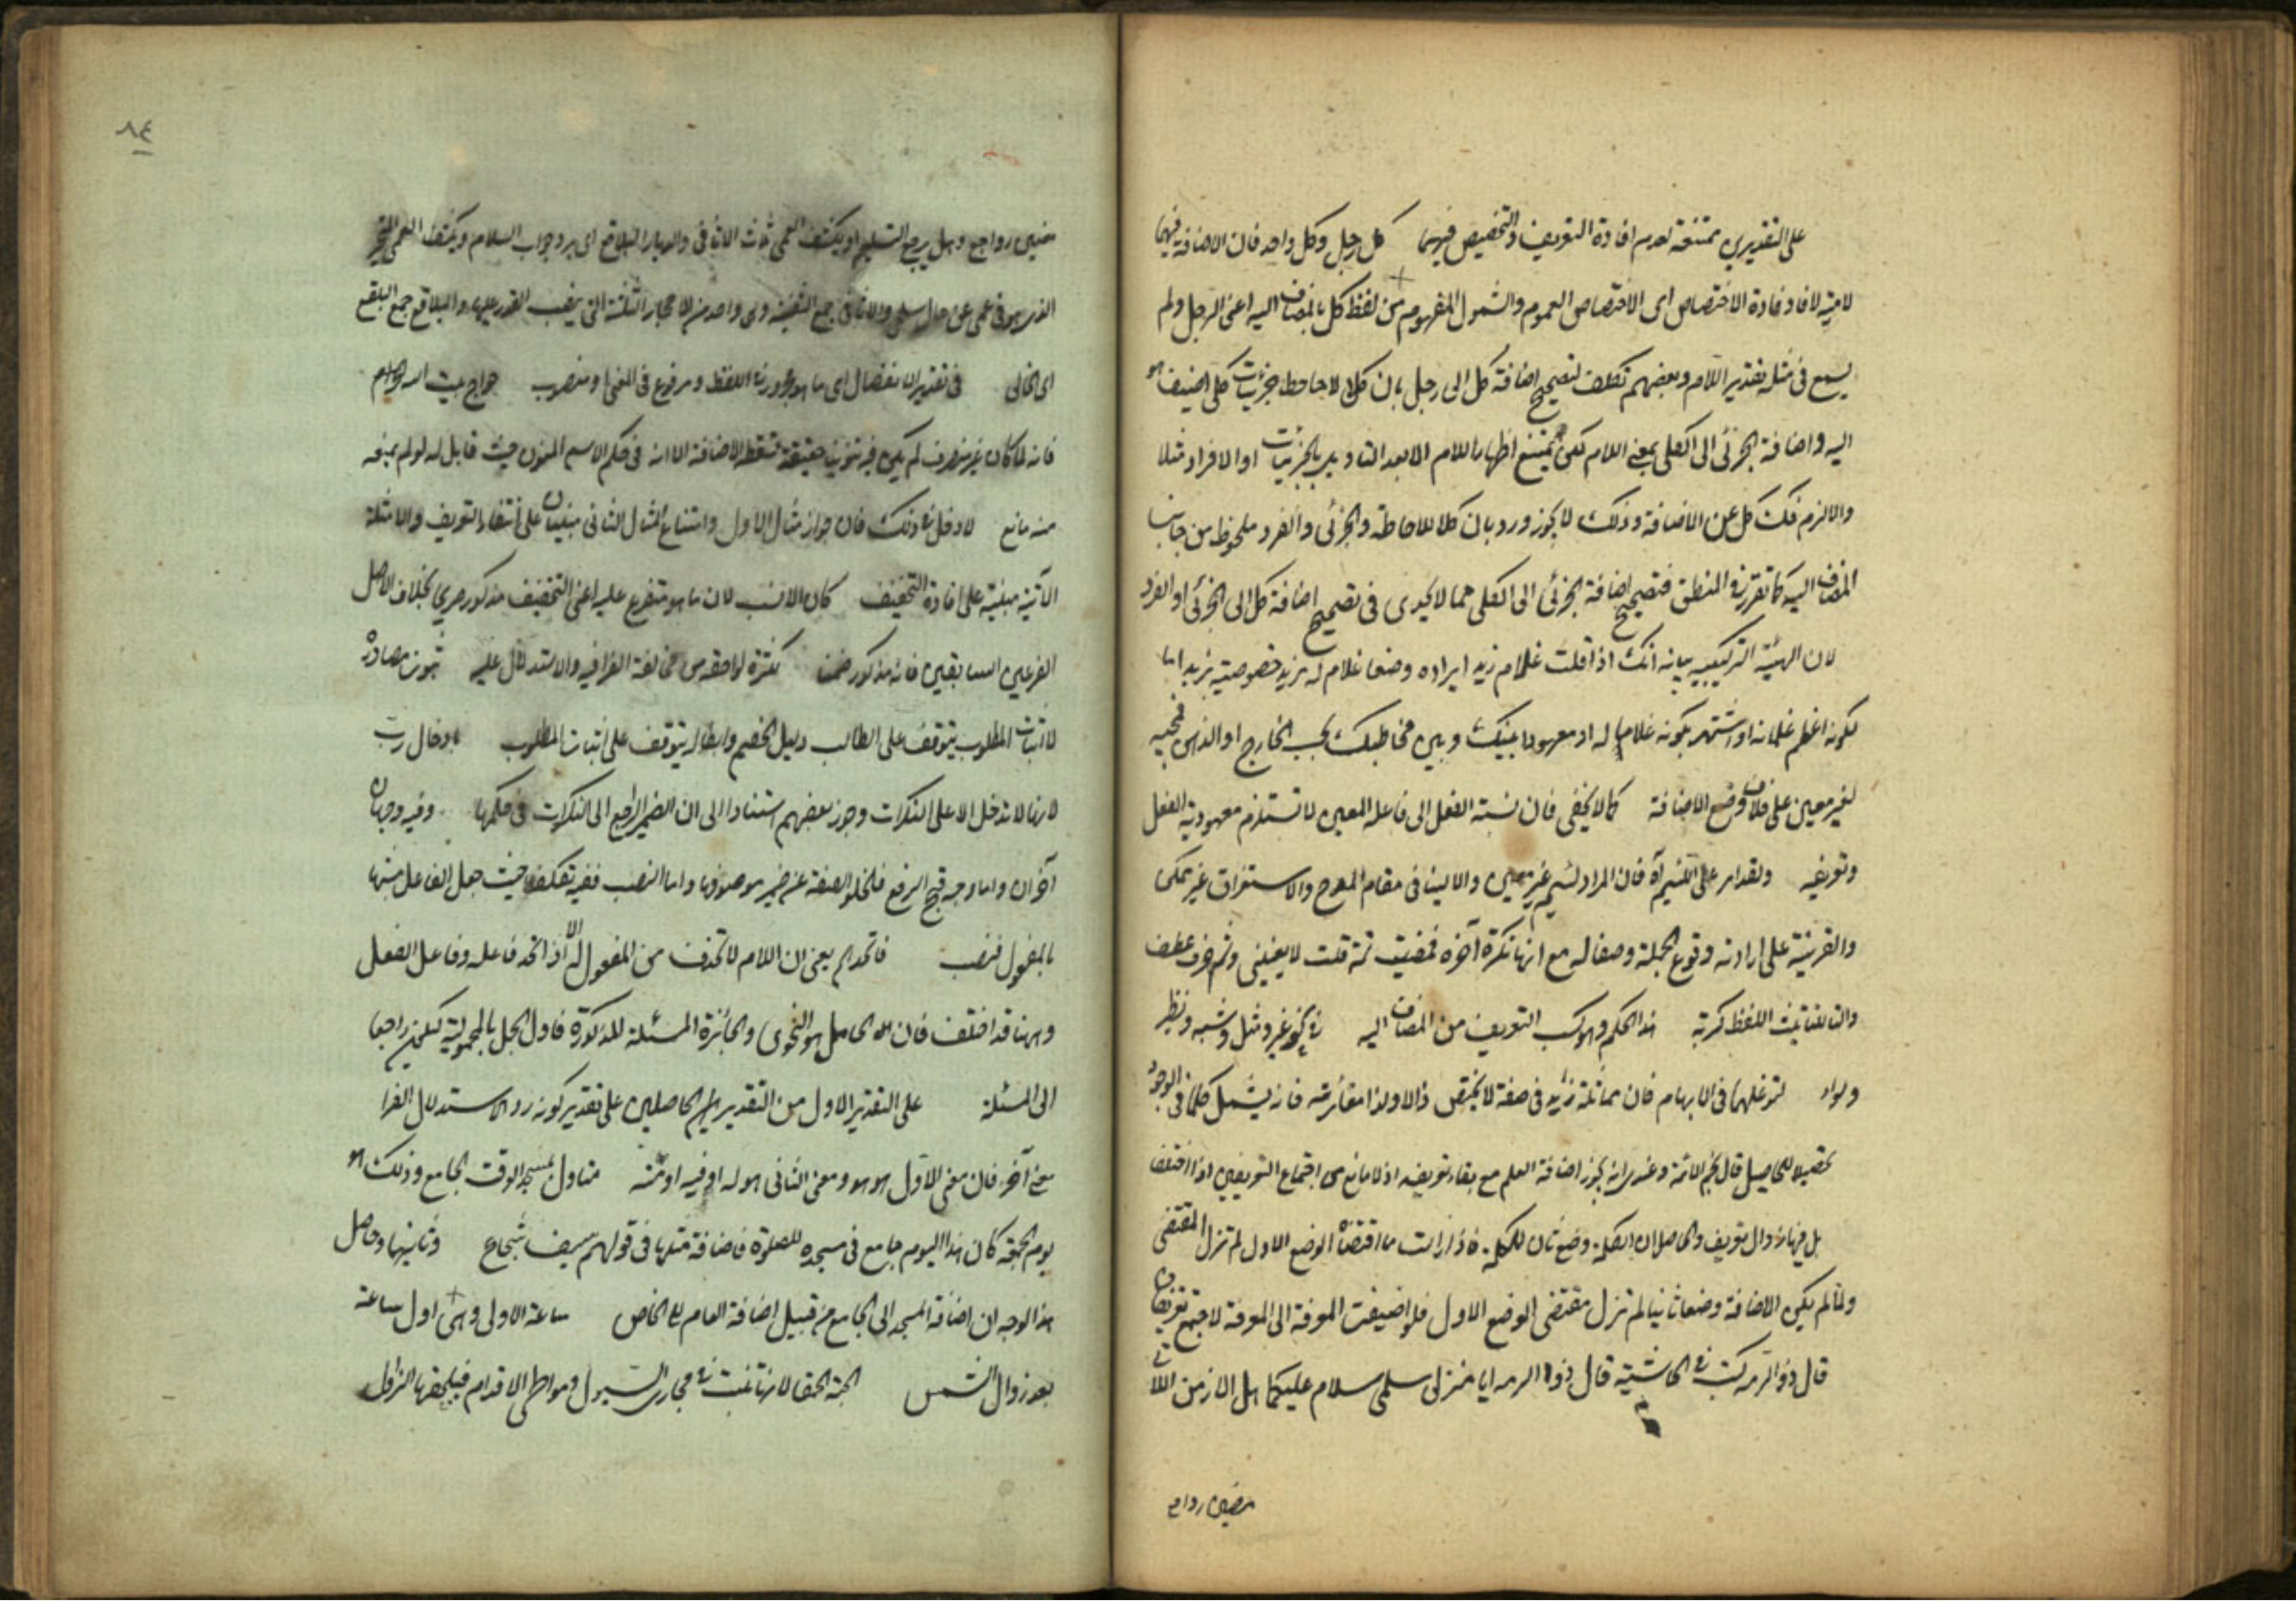 على التقديرين ممتنعة لعدم افادة التعريف والتخصيص فيهما كل رجل وكل واحد فان الاضافة فيهما
لامية لافادة الاختصاص اى الاختصاص العموم والشمول المفهوم من لفظ كل بالمضاف اليه اعنى الرجل ولم
يسمع فى مثله تقدير اللام وبعضهم تكلف لتصحيح اضافة كل الى رجل بان كلا لاحاطة جزئيات كلى اضيف هو
اليه واضافة الجزئى الى الكلى بمعنى اللام لكن يمتنع اظهار اللام الا بعد التاويل بالجزئيات او الافراد مثلا
والا لزم فك كل عن الاضافة وذلك لا يجوز ورد بان كلا للاحاطة والجزئى والفرد ملحوظ من جانب
المضاف اليه كما تقرر فى المنطق فتصحيح اضافة الجزئى الى الكلى مما لا يجدى فى تصحيح اضافة كل الى الجزئى او الفرد
لان الهيئة التركيبية بيانه انك اذا قلت غلام زيد ايراده وضعا غلام له مزيد خصوصية بزيد اما
لكونه اعظم غلمانه او اشتهر بكونه غلاما له او معهودا بينك وبين مخاطبك بحسب الخارج او الذهن فمجيئه
لغير معين على خلاف وضع الاضافة كما لا يخفى فان نسبة الفعل الى فاعله المعين لا تستلزم معهودية الفعل
وتعريفه ولقد امر على اللئيم آه فان المراد لئيم غير معين والا ليس فى مقام المدح والاستغراق غير ممكن
والقرينة على ارادته وقوع الجملة وصفا له مع انها نكرة آخره فمضيت ثمة قلت لا يعنينى وثم حرف عطف
والتاء لتانيث اللفظ كربة هذا الحكم وهو كسب التعريف من المضاف اليه فى نحو غير ومثل وشبه ونظير
وسواء لتوغلهما فى الابهام فان مماثلة زيد فى صفة لا يختص ذاتا ولذا مغايرته فانه يشمل كلما فى الوجود
تحصيلا للحاصل قال نجم الائمة وعندى انه يجوز اضافة العلم مع بقاء تعريفه اذ لا مانع من اجتماع التعريفين اذا اختلفا
بل فيها زوال تعريف والحاصل ان العلمية وضع ثان للكلمة فاذا زالت ما اقتضاه الوضع الاول لم تزل المقتضى
ولما لم يكن الاضافة وضعا ثانيا لم تزل مقتضى الوضع الاول فلو اضيفت المعرفة الى المعرفة لاجتمع تعريفان
قال ذو الرمه كتب فى الحاشية قال ذو الرمه ايا منزلى سلمى سلام عليكما هل الازمن اللاتى
مضين رواجع
٨٤
مضين رواجع وهل يرجع التسليم او يكشف العمى ثلث الاثافى والديار البلاقع اى يرد جواب السلام ويكشف العمى
الذى هو فى عمى عن حال سلمى والاثافى جمع اثفية وهى واحد من الاحجار الثلثة التى ينصب القدر عليها والبلاقع جمع البلقع
اى الخالى فى تقدير الانفصال اى ما هو مجرور فى اللفظ ومرفوع فى المعنى او منصوب حواج بيت الله الحرام
فانه لما كان غير منصرف لم يكن فيه تنوين حقيقة تسقط للاضافة الا انه فى حكم الاسم المنون حيث قابل له لو لم يمنعه
منه مانع لا دخل فى ذلك فان جواز مثال الاول وامتناع المثال الثانى مبنيان على انتفاء التعريف والامثلة
الآتية مبنية على افادة التخفيف كان الانسب لان ما هو متفرع عليه اعنى التخفيف مذكور صريحا بخلاف الاصل
الفرعين السابقين فانه مذكور ضمنا لكثرة لواحقه من مخالفة الفراء فيه والاستدلال عليه شوب مصادرة
لاثبات المطلوب يتوقف على ابطال دليل الخصم وابطاله يتوقف على اثبات المطلوب بادخال رب
لانها لا تدخل الا على النكرات وجوز بعضهم استنادا الى ان الضمير الراجع الى النكرات فى حكمها وفيه وجهان
آخران واما وجه قبح الرفع فلخلو الصفة عن ضمير موصوفها واما النصب ففيه تكلف حيث جعل الفاعل مشبها
بالمفعول فنصب فاتحد الخ يعنى ان اللام لا تحذف من المفعول له الا اذا اتحد فاعله وفاعل الفعل
وههنا قد اختلف فان الحامل هو النحوى والجائزة المسئلة المذكورة فاول الحمل بالمحمولية ليكون راجعا
الى المسئلة على التقدير الاول من التقديرين الحاصلين على تقدير كونه رد الاستدلال الفراء
معنى آخر فان معنى الاول هو هو ومعنى الثانى هو له او فيه او منه متاول بمسجد الوقت الجامع وذلك هو
يوم الجمعة كان هذا اليوم جامع فى مسجده للصلوة فاضافة مثلها فى قولهم سيف شجاع وثانيها وحاصل
هذا الوجه ان اضافة المسجد الى الجامع من قبيل اضافة العام الى الخاص ساعة الاولى وهى اول ساعة
بعد زوال الشمس الحبة الحمقاء لانها تنبت فى مجارى السيول ومواطى الاقدام فيلحقها الزوال